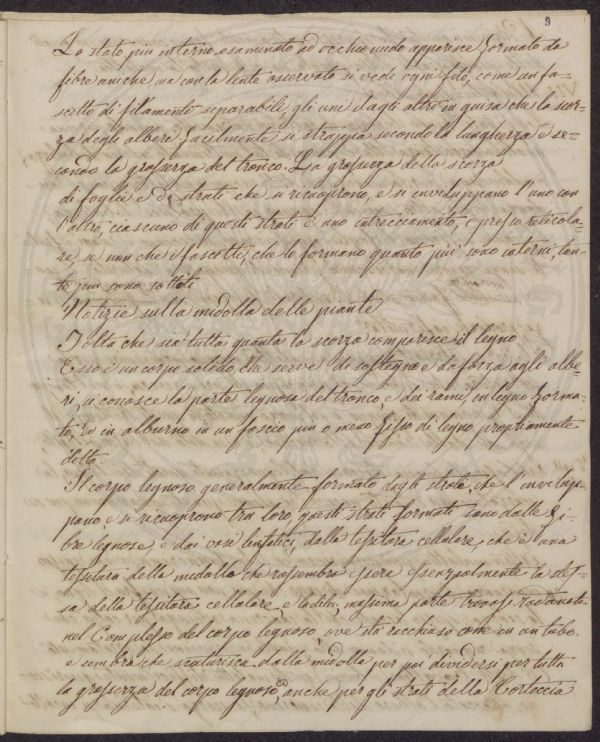 9
Lo stato piu interno esaminato ad occhio nudo apparisce formato da
fibre uniche ma con la lente osservato si vede ogni filo, come un fa-
scetto di filamenti separabili, gli uni dagli altri in guisa che la scor-
za degli alberi facilmente si strappa secondo la lunghezza e se-
condo la grossezza del tronco. La grossezza della scorza
di foglie e di strati che si ricuoprono, e si inviluppano l'uno con
l'altro, ciascuno di questi strati è uno intrecciamento, o presso reticola-
re, se non che i fascetti, che lo formano quanto più sono interni, tan-
to piu sono sottili
Notizie sulla midolla delle piante
Tolta che sia tutta quanta la scorza comparisce il legno
Esso è un corpo solido, che serve di sostegno e di forza agli albe-
ri, si conosce la parte legnosa del tronco, e dei rami, in legno forma-
to, in alburno in un fascio piu o meno fisso di legno propriamente
detto.
Il corpo legnoso generalmente formato dagli strati, che l'invilup-
pano, e si ricuoprono tra loro, questi strati formati sono dalle fi-
bre legnose, e dai vasi linfatici, dalla tessitura cellulare, che è una
tessitura della midolla che rassembra essere essenzialmente la stes-
sa della tessitura cellulare, e la di lei massima parte trovasi
nel Complesso del corpo legnoso, ove sta racchiusa come in un tubo.
e sembra che scaturisca dalla midolla per poi dividersi per tutta
la grossezza del corpo legnoso, anche per gli strati della Corteccia